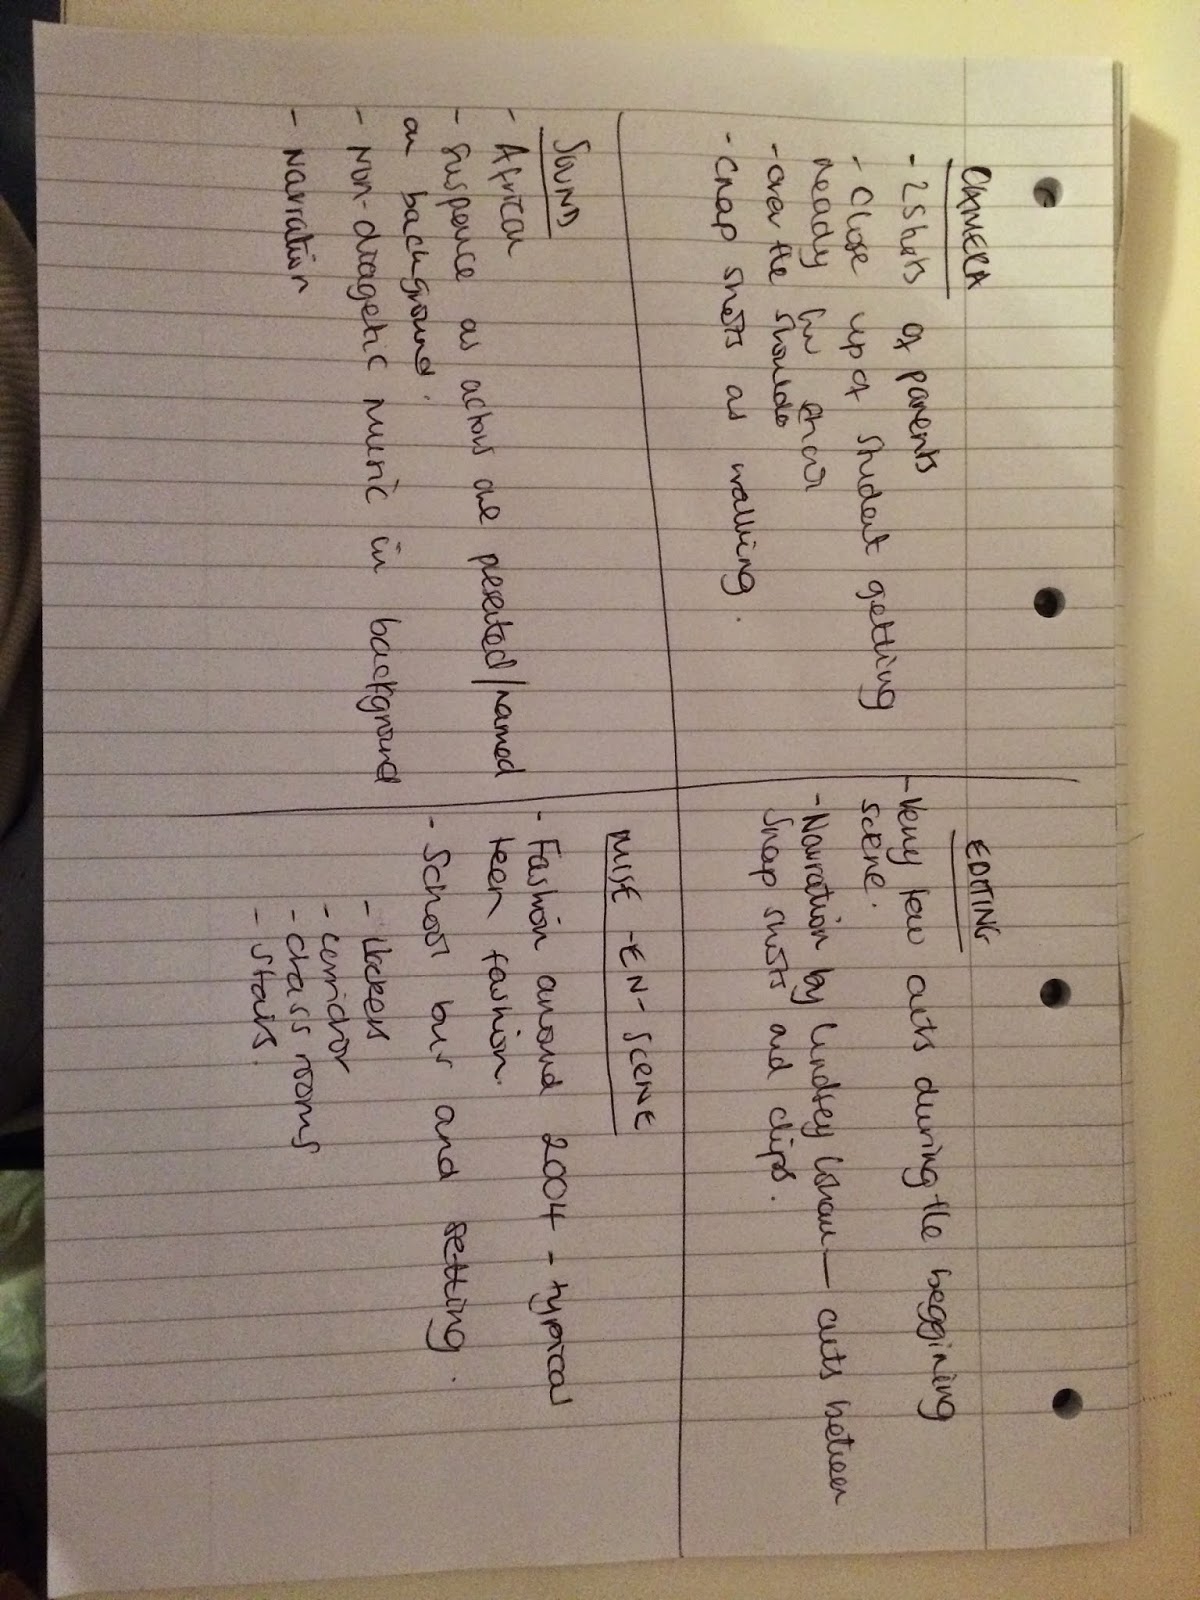 CAMERA
- 2 Shots of parents
- Close up of student getting
ready for
- over the shoulder
- snap shots as walking.
EDITING
- Very few cuts during the beggining
scene.
- Narration by Lindsey Lohan — cuts between
snap shots and clips.
SOUND
- Africa
- Suspence as actors are presented/named
on background.
- Non-diagetic music in background
- Narration
MISE-EN-SCENE
- Fashion around 2004 - typical
teen fashion.
- School bus and setting.
- lockers
- corridor
- class rooms
- stairs.